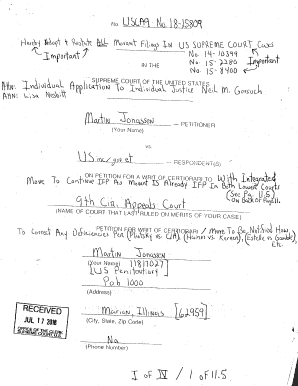 No. USCA9 No. 18-15809
Hereby Adopt + Restate Movant Filing In US SUPREME COURT Cases
Important
No. 14-10399
IN THE
No. 15-7280
Important
No. 15-8400
SUPREME COURT OF THE UNITED STATES
Attn: Individual Application To Individual Justice Neil M. Gorsuch
Attn: Lisa Nesbitt
Martin Jonassen — PETITIONER
(Your Name)
vs.
US — RESPONDENT(S)
ON PETITION FOR A WRIT OF CERTIORARI TO With Integrated
Move To Continue IFP As Movant Is Already IFP In Both Lowest Courts
(See Pg. 11.5)
9th Cir. Appeals Court
(NAME OF COURT THAT LAST RULED ON MERITS OF YOUR CASE)
PETITION FOR WRIT OF CERTIORARI / Move To Be Notified How
To Correct Any Deficiencies Per (Haines vs Kerner), (Estelle vs Gamble),
Etc.
Martin Jonassen
(Your Name) 11817027
[US Penitentiary]
Pob 1000
(Address)
Marion, Illinois [62959]
(City, State, Zip Code)
No
(Phone Number)
RECEIVED
JUL 17 2018
I of IV / 1 of 11.5